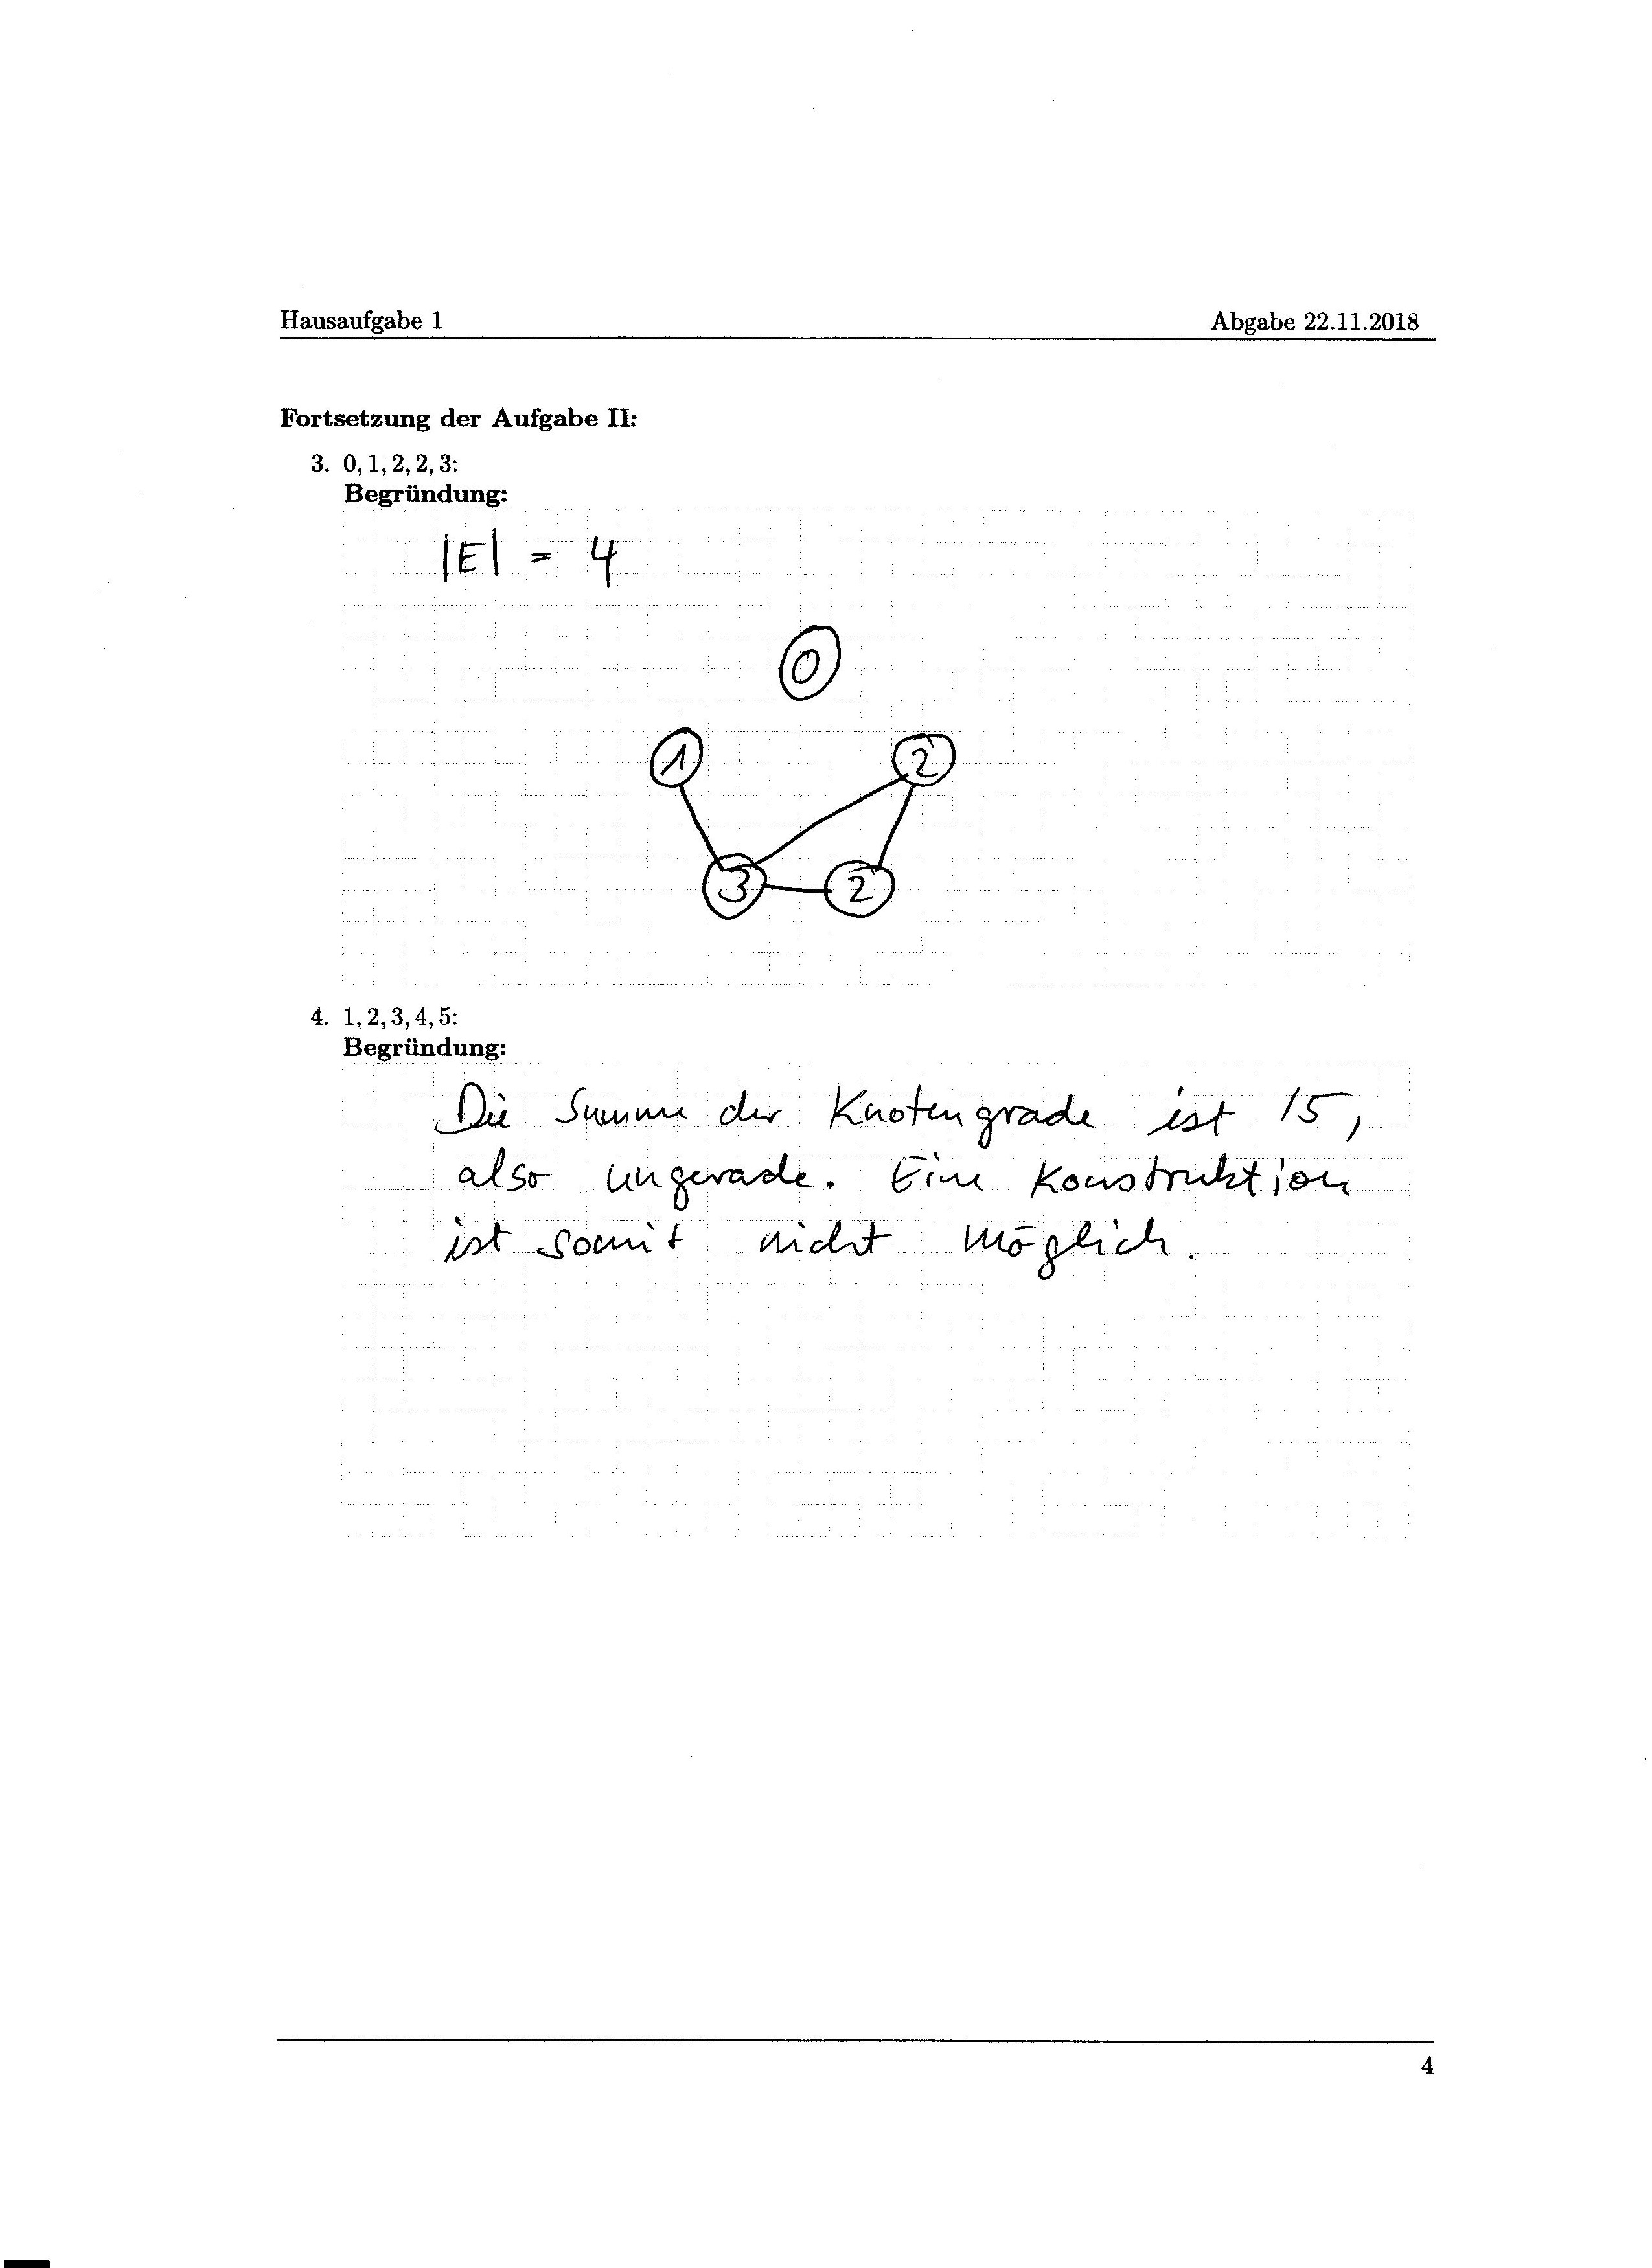 Hausaufgabe 1 Abgabe 22.11.2018
Fortsetzung der Aufgabe II:
3. 0, 1, 2, 2, 3:
Begründung:
|E| = 4
0
1 2
3 2
4. 1, 2, 3, 4, 5:
Begründung:
Die Summe der Knotengrade ist 15,
also ungerade. Eine Konstruktion
ist somit nicht möglich.
4